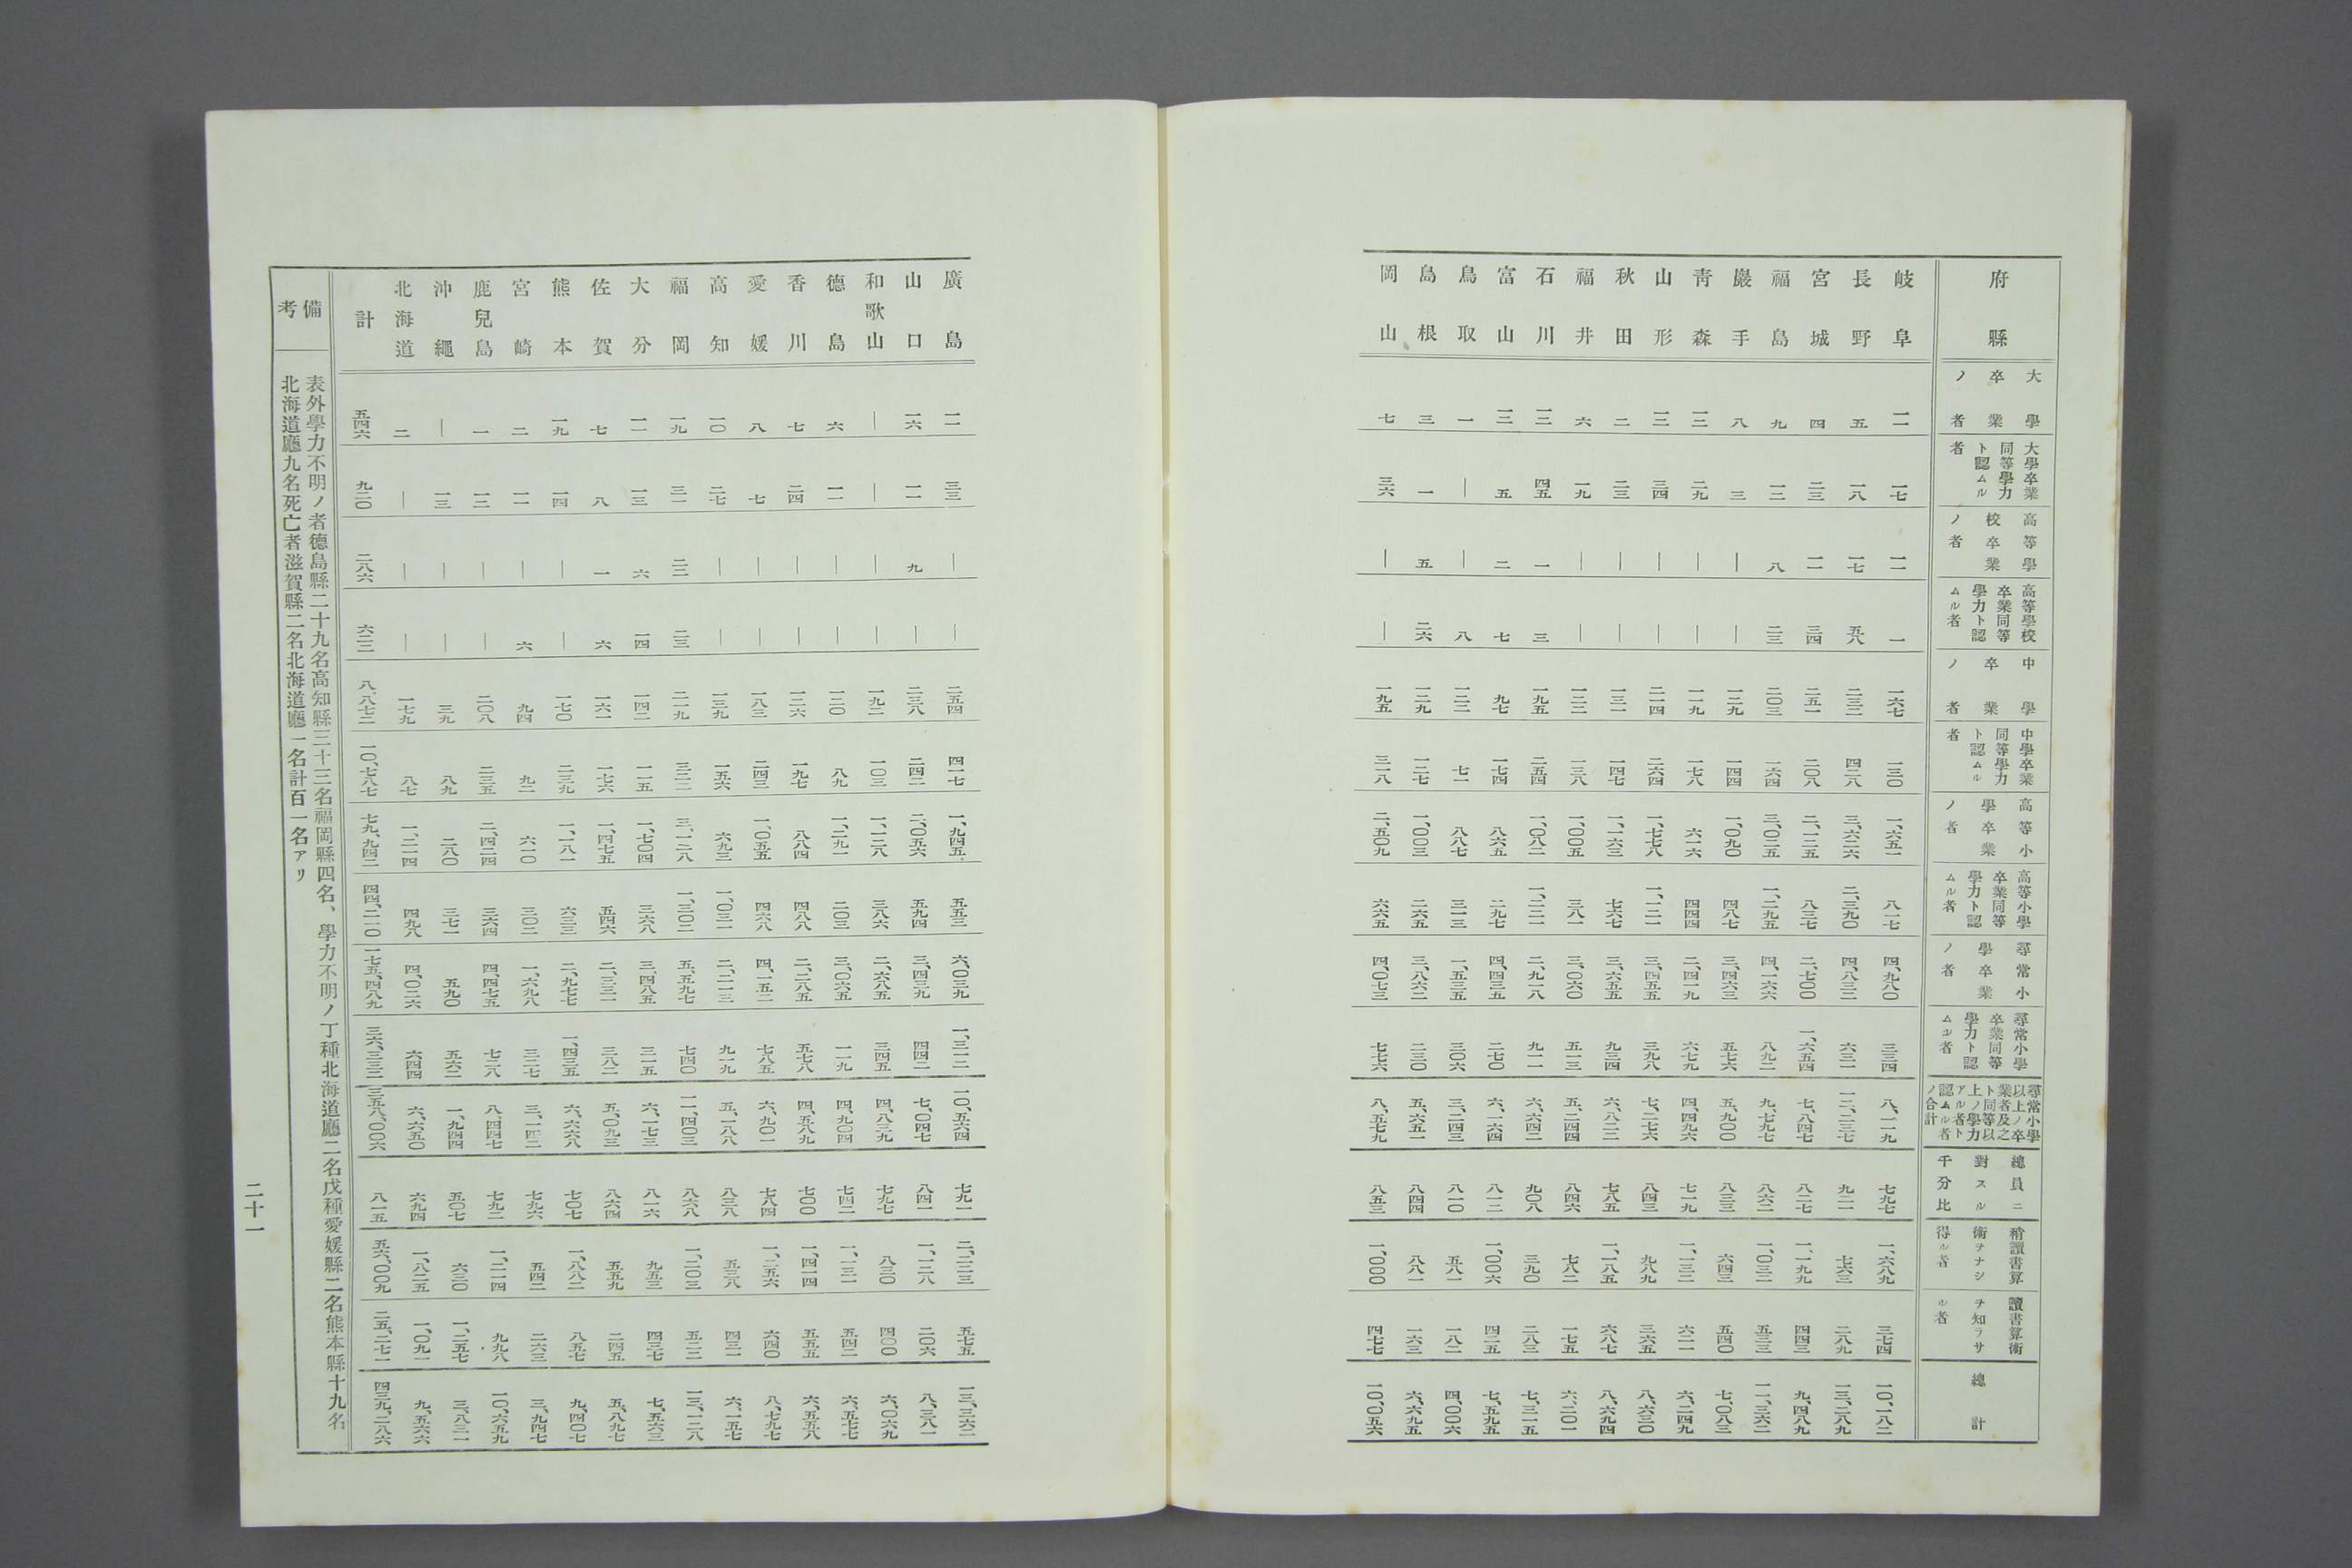 府縣 大學卒業ノ者 大學卒業同等學力ト認ムル者 高等學校卒業ノ者 高等學校卒業同等學力ト認ムル者 中學卒業ノ者 中學卒業同等學力ト認ムル者 高等小學卒業ノ者 高等小學卒業同等學力ト認ムル者 尋常小學卒業ノ者 尋常小學卒業同等學力ト認ムル者 尋常小學以上ノ卒業者及之ト同等以上ノ學力アル者ト認ムル者ノ合計 總員ニ對スル千分比 稍讀書算術ヲナシ得ル者 讀書算術ヲ知ラサル者 總計
岐阜 一一 一七 一一 一 一六七 一三〇 一、六五一 八一七 四、九八〇 三三四 八、一一九 七九七 一、六八九 三七四 一〇、一八二
長野 五 一八 一七 五八 二三二 四二八 三、六二六 二、三九〇 四、八三二 六三一 一二、二三七 九二一 七六三 二八九 一三、二八九
宮城 四 二三 一一 三四 二五一 二〇八 二、一二五 八三七 二、七〇〇 一、六五四 七、八四七 八二七 一、一九九 四四三 九、四八九
福島 九 一二 八 二三 二〇三 一六四 三、〇二五 一、二九五 四、一六六 八九二 九、七九七 八六二 一、〇三二 五三三 一一、三六二
巖手 八 三 ― ― 一二九 一四四 一、〇九〇 四八七 三、四六三 五七六 五、九〇〇 八三三 六四三 五四〇 七、〇八三
青森 一二 二九 ― ― 一一九 一七八 六一六 四四四 二、四一九 六七九 四、四九六 七一九 一、一三二 六二一 六、二四九
山形 一二 三四 ― ― 二一四 二六四 一、七七八 一、一二一 三、四五五 三九八 七、二七六 八四三 九八九 三六五 八、六三〇
秋田 二 二三 ― ― 一三一 一四七 一、一六三 七六七 三、六五五 九三四 六、八二二 七八五 一、一八五 六八七 八、六九四
福井 六 一九 ― ― 一二二 一三八 一、〇〇五 三八一 三、〇六〇 五一三 五、二四四 八四六 七八二 一七五 六、二〇一
石川 一二 四五 一 三 一九五 二五四 一、〇八二 一、二二一 二、九一八 九一一 六、六四二 九〇八 三九〇 二八三 七、三一五
富山 一二 五 二 七 九七 一七四 八六五 二九七 四、四三五 二七〇 六、一六四 八一二 一、〇〇六 四二五 七、五九五
鳥取 一 ― ― 八 一二二 七一 八八七 三一三 一、五三五 三〇六 三、二四三 八一〇 五八一 一八二 四、〇〇六
島根 三 一 五 二六 一二九 一二七 一、〇〇三 二六五 三、八六二 二三〇 五、六五一 八四四 八八一 一六三 六、六九五
岡山 七 三六 ― ― 一九五 三一八 二、五〇九 六六五 四、〇七三 七七六 八、五七九 八五三 一、〇〇〇 四七七 一〇、〇五六
廣島 一一 三三 ― ― 二五四 四一七 一、九四五 五五三 六、〇三九 一、三一二 一〇、五六四 七九一 二、二二三 五七五 一三、三六二
山口 一六 一一 九 ― 二三八 二四二 二、〇五六 五九四 三、四三九 四四二 七、〇四七 八四一 一、一二八 二〇六 八、三八一
和歌山 ― ― ― ― 一九二 一〇三 一、一二八 三八六 二、六八五 三四五 四、八三九 七九七 八三〇 四〇〇 六、〇六九
德島 六 一一 ― ― 一二〇 八九 一、二九一 二〇三 三、〇六五 一一九 四、九〇四 七四二 一、一三一 五四二 六、五七七
香川 七 二四 ― ― 一二六 一九七 八八四 四八八 二、二八五 五七八 四、五八九 七〇〇 一、四一四 五五五 六、五五八
愛媛 八 七 ― ― 一八三 二四三 一、〇五五 四六八 四、一五二 七八五 六、九〇一 七八四 一、二五六 六四〇 八、七九七
高知 一〇 二七 ― ― 一三九 一五六 六九三 一、〇三一 二、二一三 九一九 五、一八八 八三八 五三八 四三一 六、一五七
福岡 一九 三一 二二 二三 二一九 三二二 三、一二八 一、三〇二 五、五九七 七四〇 一一、四〇三 八六八 一、二〇三 五二二 一三、一二八
大分 一一 一三 六 一四 一四二 一一五 一、七〇四 三六八 三、四八五 三一五 六、一七三 八一六 九五三 四三七 七、五六三
佐賀 七 八 一 六 一六一 一七六 一、四七五 五四六 二、三三一 三八二 五、〇九三 八六四 五五九 二四五 五、八九七
熊本 一九 一四 ― ― 一七〇 二三九 一、一八一 六三三 二、九七七 一、四三五 六、六六八 七〇七 一、八八二 八五七 九、四〇七
宮崎 二 一一 ― 六 九四 九二 六一〇 三〇二 一、六九八 三二七 三、一四二 七九六 五四二 二六三 三、九四七
鹿兒島 一 一二 ― ― 二〇八 二三五 二、四二四 三六四 四、四七五 七二八 八、四四七 七九二 一、二一四 九九八 一〇、六五九
沖繩 ― 一三 ― ― 三九 八九 二八〇 三七一 五九〇 五六二 一、九四四 五〇七 六三〇 一、二五七 三、八三一
北海道 二 ― ― ― 一七九 八七 一、二一四 四九八 四、〇二六 六四四 六、六五〇 六九四 一、八二五 一、〇九一 九、五六六
計 五四六 九二〇 二八六 六二二 八、八七二 一〇、七八七 七九、九四二 四四、二一〇 一七五、四八九 三六、三三二 三五八、〇〇六 八一五 五六、〇〇九 二五、二七一 四三九、二八六
備考
表外學力不明ノ者德島縣二十九名高知縣三十三名福岡縣四名、學力不明ノ丁種北海道廳二名戊種愛媛縣二名熊本縣十九名
北海道廳九名死亡者滋賀縣二名北海道廳一名計百一名アリ
二十一